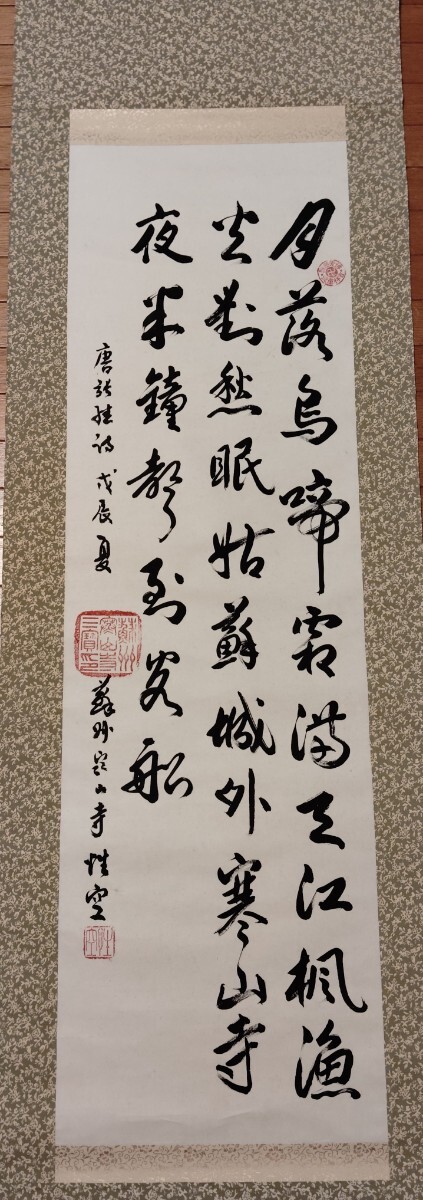 月落烏啼霜滿天江楓漁
火對愁眠姑蘇城外寒山寺
夜半鐘聲到客船
唐張繼詩 戊辰夏
蘇州寒山寺 性空